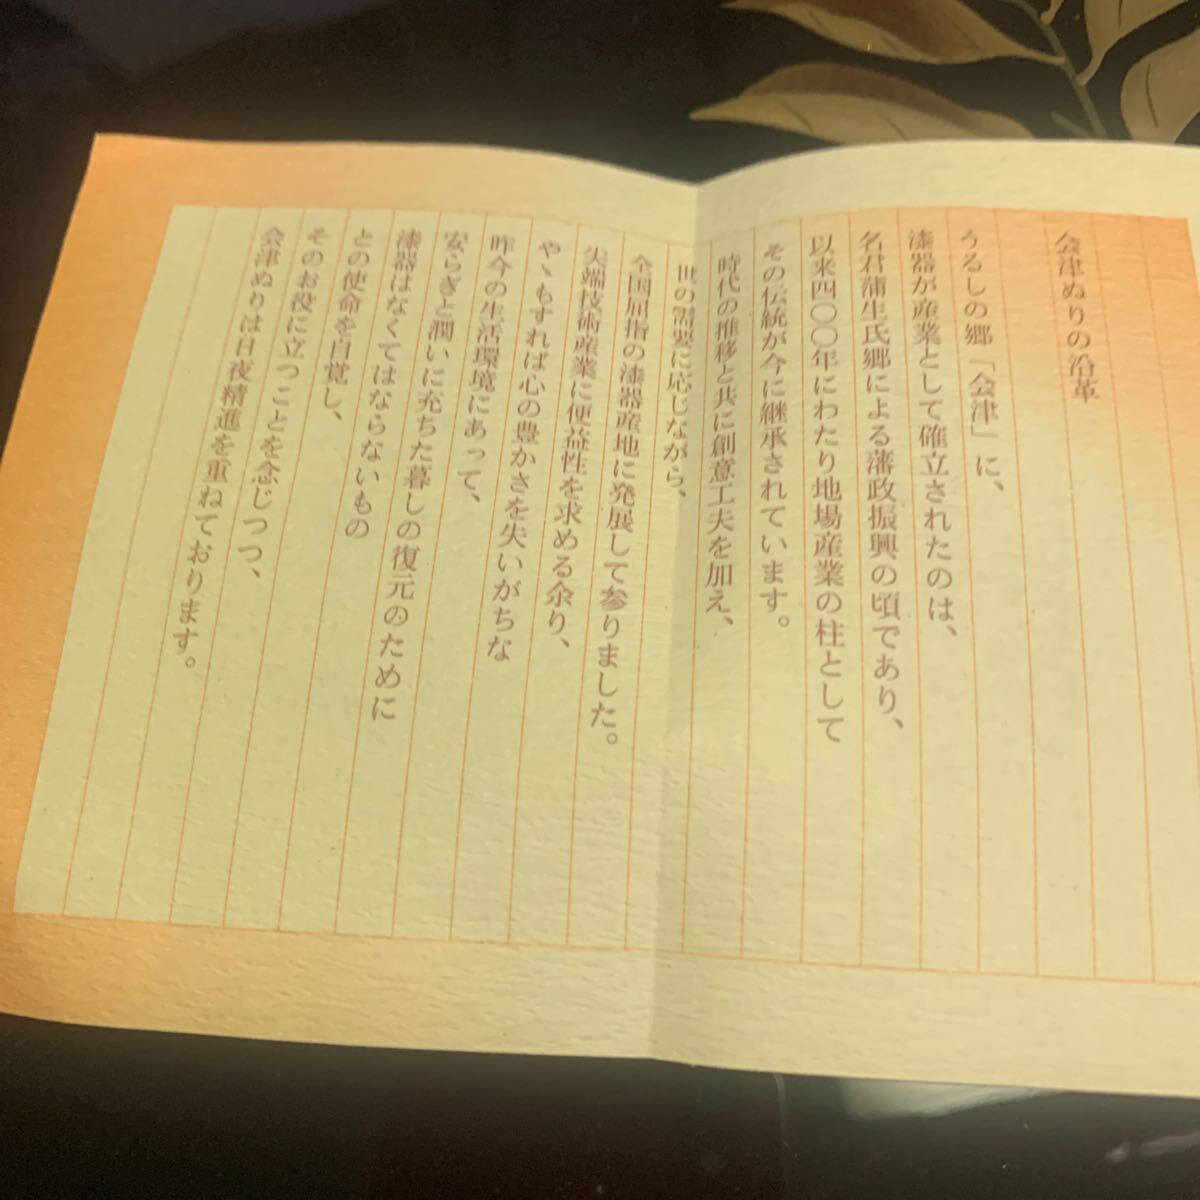 会津ぬりの沿革
うるしの郷「会津」に、
漆器が産業として確立されたのは、
名君蒲生氏郷による藩政振興の頃であり、
以来四〇〇年にわたり地場産業の柱として
その伝統が今に継承されています。
時代の推移と共に創意工夫を加え、
世の需要に応じながら、
全国屈指の漆器産地に発展して参りました。
先端技術産業に便益性を求める余り、
やゝもすれば心の豊かさを失いがちな
昨今の生活環境にあって、
安らぎと潤いに充ちた暮しの復元のために
漆器はなくてはならないもの
との使命を自覚し、
そのお役に立つことを念じつつ、
会津ぬりは日夜精進を重ねております。